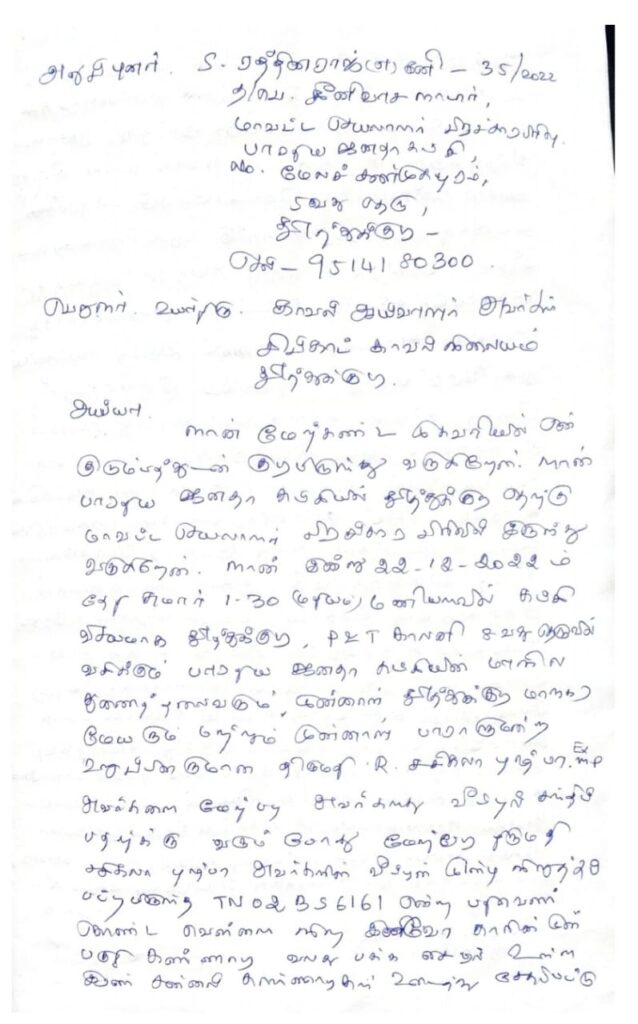 அனுப்புனர். S. ரத்தினராஜ்மணி - 35/2022
த/பெ. சீனிவாச நாடார்,
மாவட்ட செயலாளர் பிரச்சாரபிரிவு.
பாரதிய ஜனதா கட்சி,
No. மேலச் சண்முகபுரம்,
5வது தெரு,
தூத்துக்குடி -
செல் - 9514180300.
பெறுநர். உயர்திரு. காவல் ஆய்வாளர் அவர்கள்
சிப்காட் காவல் நிலையம்
தூத்துக்குடி.
அய்யா.
நான் மேற்கண்ட முகவரியில் என்
குடும்பத்துடன் குடியிருந்து வருகிறேன். நான்
பாரதிய ஜனதா கட்சியில் தூத்துக்குடி தெற்கு
மாவட்ட செயலாளர் பிரச்சார பிரிவில் இருந்து
வருகிறேன். நான் இன்று 22-12-2022 ம்
தேதி சுமார் 1-30 (மதியம்) மணியளவில் கட்சி
விசயமாக தூத்துக்குடி, P&T காலனி தெருவில்
வசிக்கும் பாரதிய ஜனதா கட்சியின் மாநில
துணைத்தலைவரும் முன்னாள் தூத்துக்குடி மாநகர
மேயரும் மற்றும் முன்னாள் பாராளுமன்ற
உறுப்பினருமான திருமதி. R. சசிகலா புஷ்பா. Ex. MP
அவர்களை மேற்படி அவர்களது வீட்டில் சந்திப்
பதற்க்கு வரும் போது மேற்படி திருமதி
சசிகலா புஷ்பா அவர்களின் வீட்டின் முன்பு நிறுத்தி
வைக்கப்பட்டிருந்த TN 02 BS 6161 என்ற பதிவெண்
கொண்ட வெள்ளை நிற இன்னோவா காரின் முன்
பகுதி கண்ணாடி வலது பக்க உள்ள
ஜன்னல் கண்ணாடிகள் உடைந்து சேதப்பட்டு